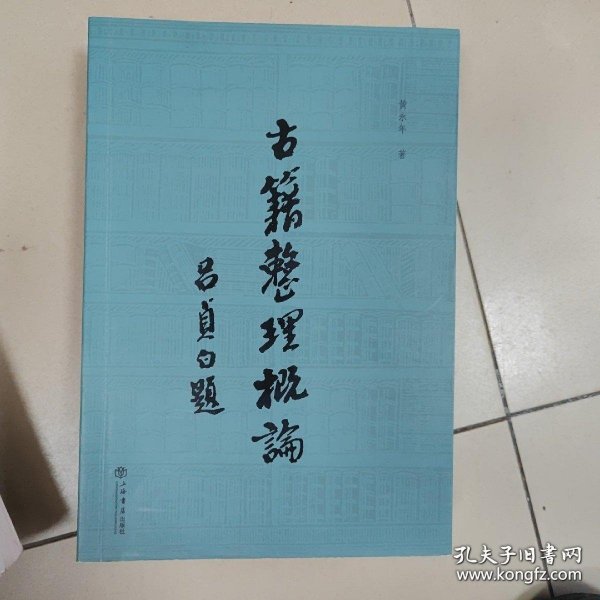 黄永年 著
古籍整理概論
吕貞白題
上海書店出版社
孔夫子旧書网
www.kongfz.com